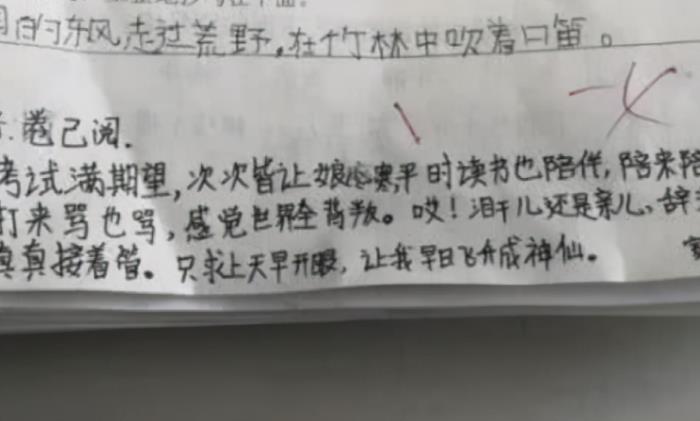 的东风走过荒野,在竹林中吹着口笛。
卷已阅.
考试满期望,次次皆让娘心寒,平时读书也陪伴,陪来陪
打来骂也骂,感觉世界全背叛。哎!泪干儿还是亲儿,辞
真真接着管。只求上天早开眼,让我早日飞升成神仙。